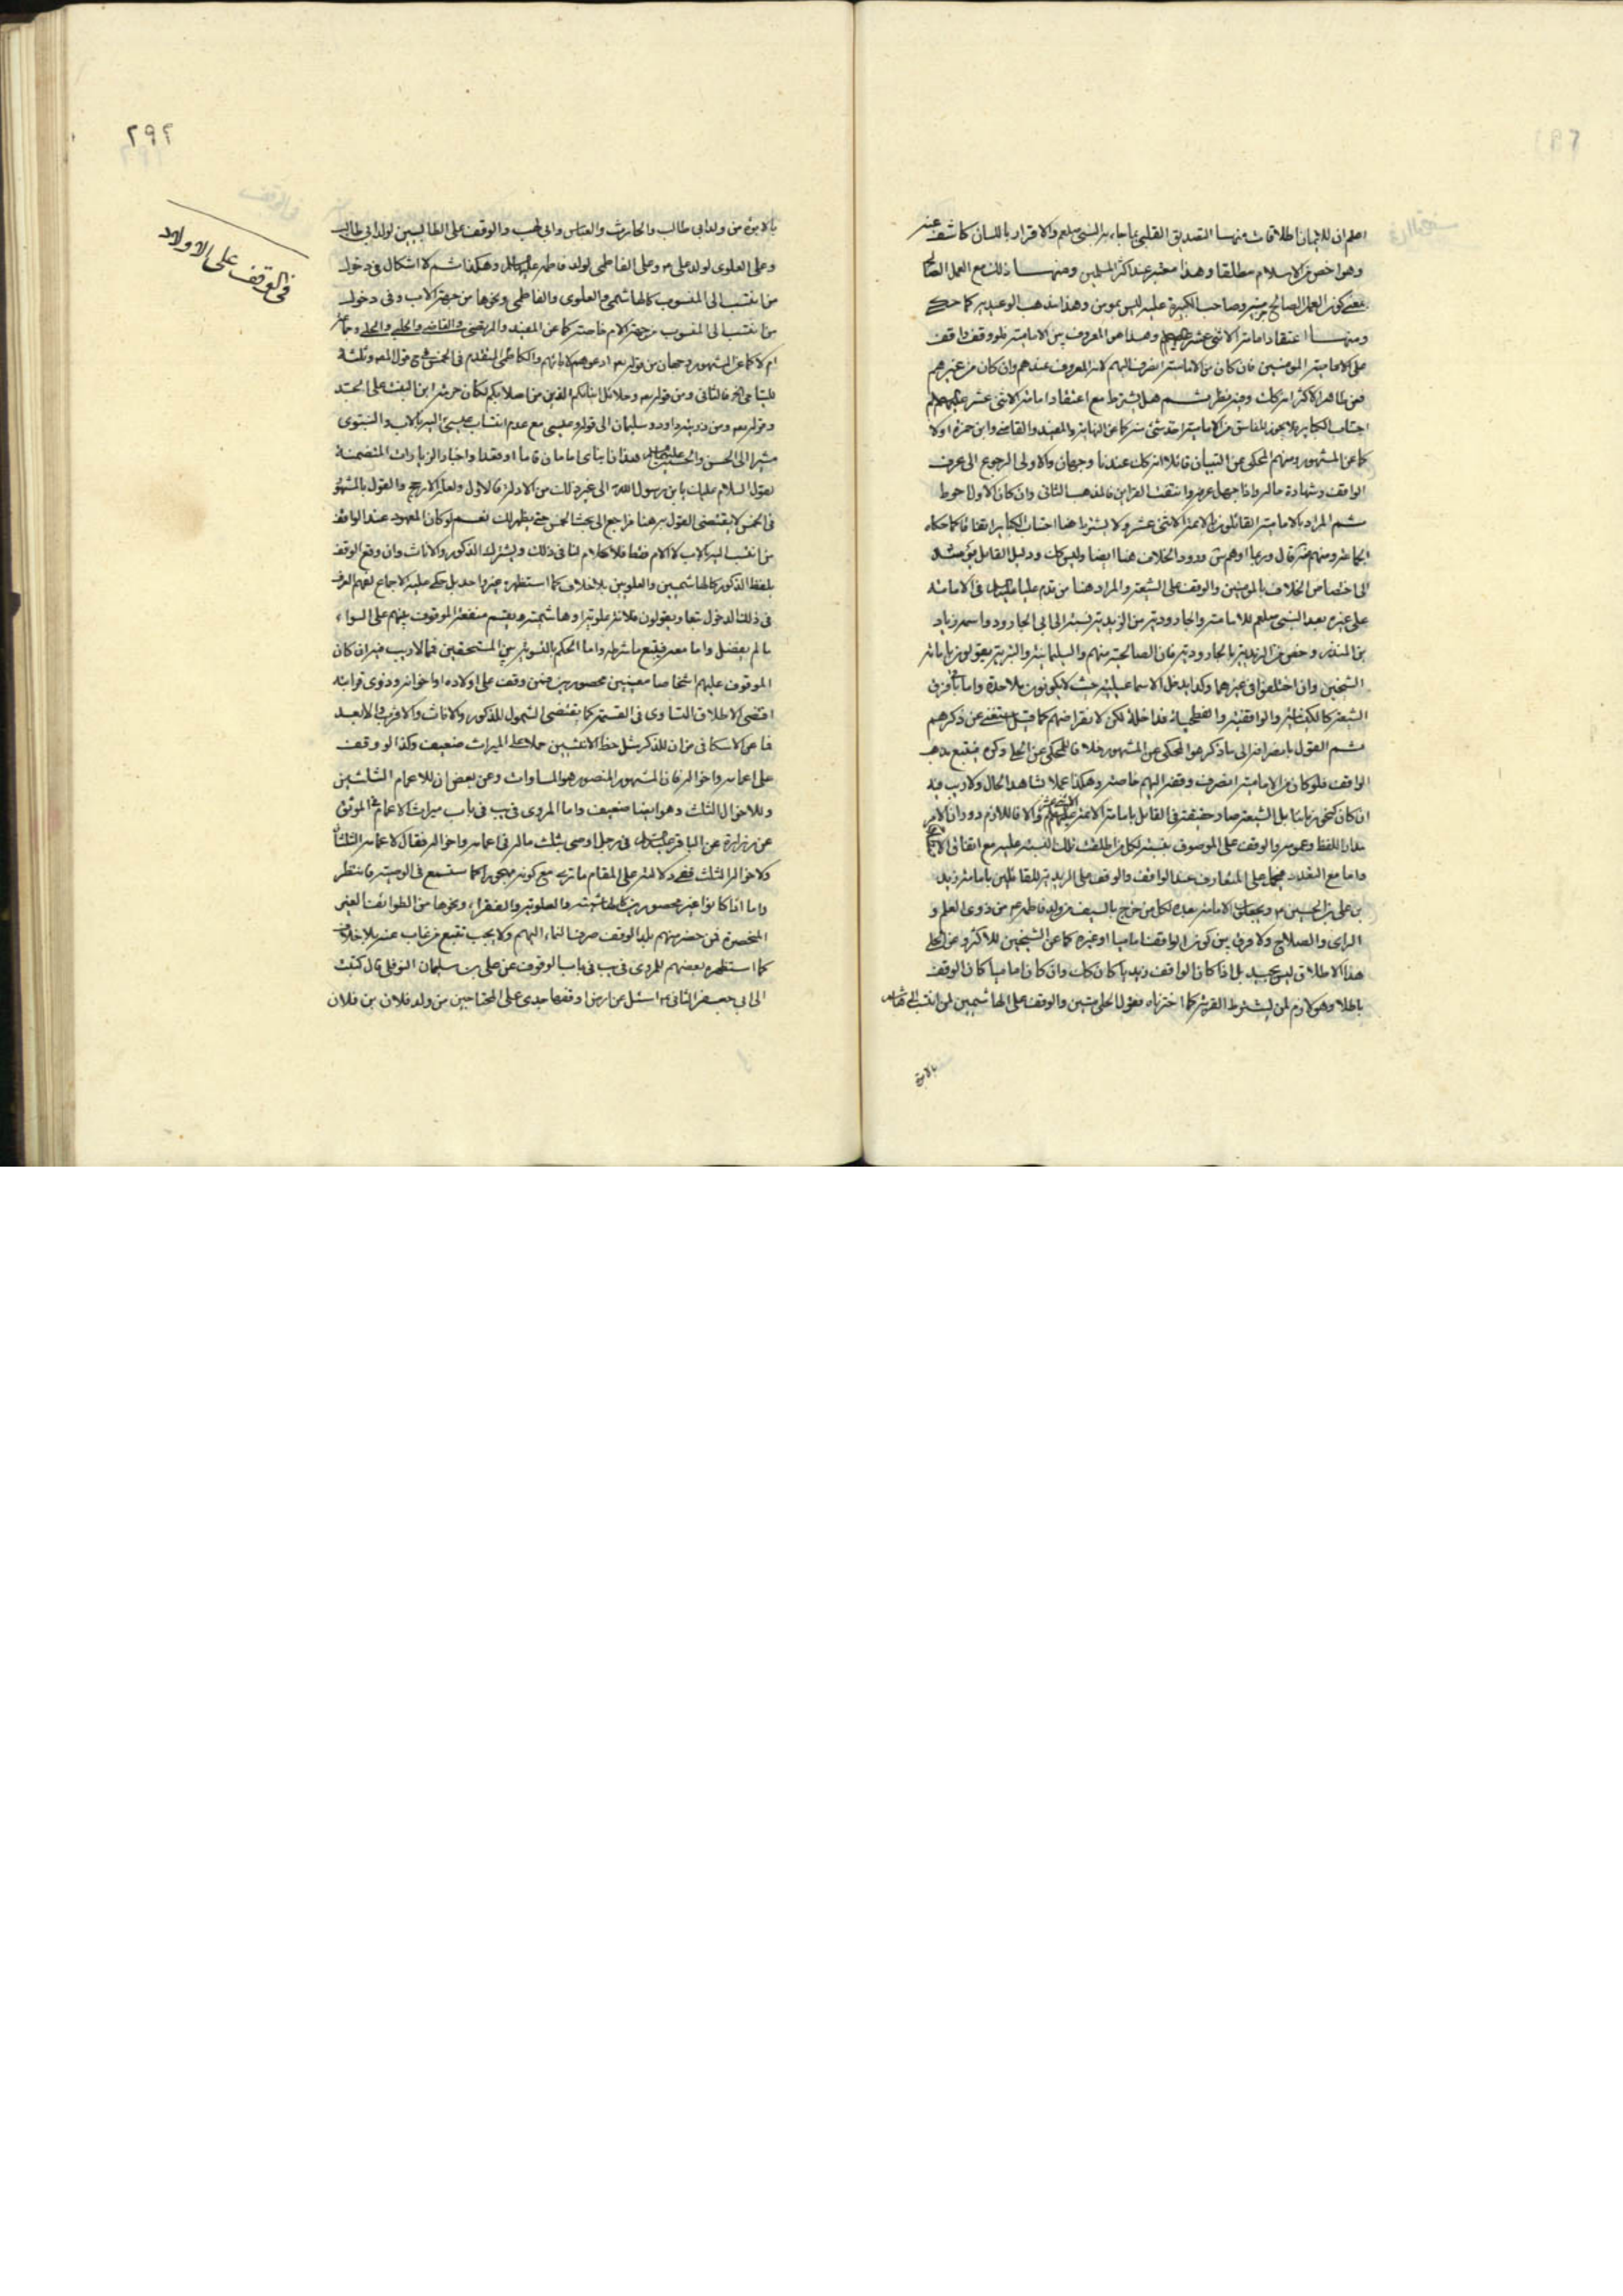 اعلم ان للايمان اطلاقات منها التصديق القلبي بما جاء به النبي صلعم والاقرار باللسان كاشف عنه
وهو اخص من الاسلام مطلقا وهذا معتبر عند اكثر المسلمين ومنها ذلك مع العمل الصالح
بمعنى كون العمل الصالح جزء منه وصاحب الكبيرة عليه ليس بمومن وهذا مذهب الوعيدية كما حكى
ومنها اعتقاد امامة الاثنى عشر وهذا هو المعروف بين الامامية فلو وقف واقف
على الامامية المومنين فان كان من الامامية انصرف اليهم لانه المعروف عندهم وان كان من غيرهم
فعن ظاهر الاكثر انه كك وفيه نظر ثم هل يشترط مع اعتقاد امامة الاثنى عشر
اجتناب الكباير فلا يجوز للفاسق من الامامية اخذ شئ منه كما عن النهاية والمفيد والقاضي وابن حمزة اولا
كما عن المشهور ومنهم المحكى عن التبيان قائلا انه كك عندنا وجهان والاولى الرجوع الى عرف
الواقف وشهادة حاله واذا جهل عرفه وانتفت القراين فالمذهب الثانى وان كان الاول احوط
ثم المراد بالامامية القائلون بالائمة الاثنى عشر ولا يشترط هنا اجتناب الكباير اتفاقا كما حكاه
جماعة ومنهم من قال وربما اوهم ورود الخلاف هنا ايضا وليس كك ودليل القايل
الى اختصاص الخلاف بالمومنين والوقف على الشيعة والمراد هنا من قدم عليا فى الامامة
على غيره بعد النبى صلعم للامامية والجارودية من الزيدية نسبة الى ابى الجارود واسمه زياد
بن المنذر وخص من الزيدية بالجارودية فان الصالحية منهم والسليمانية والبترية يقولون بامامة
الشيخين وان اختلفوا فى غيرهما وكذا يدخل الاسماعيلية حيث لا يكونون ملاحدة واما باقى فرق
الشيعة كالكيسانية والواقفية والفطحية فداخلة لكن لانقراضهم كما قيل مستغنى عن ذكرهم
ثم القول بانصرافه الى ما ذكر هو المحكى عن المشهور خلافا للمحكى عن الحلى وكره فيتبع مذهب
الواقف فلو كان من الامامية انصرف وقفه اليهم خاصة وهكذا عملا بشاهد الحال ولا ريب فيه
ان كان كنحو زماننا بل الشيعة صار حقيقة فى القايل بامامة الائمة الاثنى عشر والا فاللازم دوران الامر
مدار اللفظ وعمومه والوقف على الموصوف بنسبة لكل من اطلقت تلك النسبة عليه مع اتفاق
واما مع التعدد فيحمل على المتعارف عند الواقف والوقف على الزيدية للقائلين بامامة زيد
بن على بن الحسين ع ويجعلون الامامة بعده لكل من خرج بالسيف من ولد فاطمة ع من ذوى العلم و
الراى والصلاح ولا فرق بين كون الواقف اماميا او غيره كما عن الشيخين للاكثر وعن الحلى
هذا الاطلاق ليس بجيد بل اذا كان الواقف زيديا كان كك وان كان اماميا كان الوقف
باطلا وهو لازم لمن يشترط القربة كما اخترناه فقول الحلى متين والوقف على الهاشميين لمن انتسب الى هاشم
بالابوة
٢٩٢
فى الوقف على الاولاد
بالابوة من ولد ابى طالب والحارث والعباس وابى لهب والوقف على الطالبيين لولد ابى طالب
وعلى العلوى لولد على ع وعلى الفاطمى لولد فاطمة وهكذا ثم لا اشكال فى دخول
من انتسب الى المنسوب كالهاشمى والعلوى والفاطمى ونحوها من جهة الاب وفى دخول
من انتسب الى المنسوب من جهة الام خاصة كما عن المفيد والمرتضى والقاضى والحلبى والحلى وجماعة
ام لا كما عن المشهور وجهان من قوله تعم ادعوهم لابائهم والكاظمى المتقدم فى الخمس
فالثانى ومن قوله تعم وحلائل ابنائكم الذين من اصلابكم لكان حرمة ابن البنت على الجد
وقوله تعم ومن ذريته داود وسليمان الى قوله وعيسى مع عدم انتساب عيسى اليه بالاب والنبوى
مشيرا الى الحسن والحسين هذان ابناى امامان قاما او قعدا واخبار الزيارات المتضمنة
لقول السلام عليك يابن رسول الله الى غير ذلك من الادلة فالاول ولعله الارجح والقول بالمشهور
فى الخمس لا يقتضى القول به هنا فراجع الى بحث الخمس حتى يظهر لك نعم لو كان المعهود عند الواقف
من انتسب اليه بالاب لا الام قطعا فلا كلام لنا فى ذلك ويشترك الذكور والاناث وان وقع الوقف
بلفظ الذكور كالهاشميين والعلويين بلا خلاف كما استظهره غير واحد بل حكى عليه الاجماع لفهم العرف
فى ذلك الدخول تبعا ويقولون فلانة علوية او هاشمية ويقسم منفعة الموقوف بينهم على السواء
ما لم يفضل واما معه فيتبع ما شرطه واما الحكم بالتسوية بين المستحقين فمما لا ريب فيه ان كان
الموقوف عليهم اشخاصا معينين محصورين فمن وقف على اولاده او اخوانه وذوى قرابته
اقتضى الاطلاق التساوى فى القسمة كما يقتضى الشمول للذكور والاناث والاقرب والابعد
فما عن الاسكافى من ان للذكر مثل حظ الانثيين حملا على الميراث ضعيف وكذا لو وقف
على اعمامه واخواله فان المشهور المنصور هو المساوات وعن بعض ان للاعمام الثلثين
وللاخوال الثلث وهو ايضا ضعيف واما المروى فى يب فى باب ميراث الاعمام فى الموثق
عن زرارة عن الباقر فى رجل اوصى بثلث ماله فى اعمامه واخواله فقال لاعمامه الثلثان
ولاخواله الثلث ففى دلالته على المقام ما ترى مع كونه مهجورا كما ستسمع فى الوصية فانتظر
واما اذا كانوا غير محصورين كالهاشمية والعلوية والفقراء ونحوها من الطوائف الغير
المنحصرة فمن حضر منهم بلد الوقف صرف النماء اليهم ولا يجب تتبع من غاب عنه بلا خلاف
كما استظهره بعضهم للمروى فى يب فى باب الوقوف عن على بن سليمان النوفلى قال كتبت
الى ابى جعفر الثانى ع اسئل عن ارض اوقفها جدى على المحتاجين من ولد فلان بن فلان